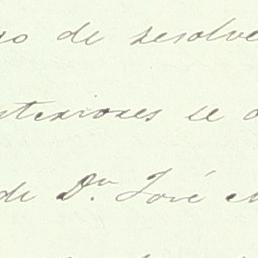 so de resolve
nteriores se o
de Dn. José